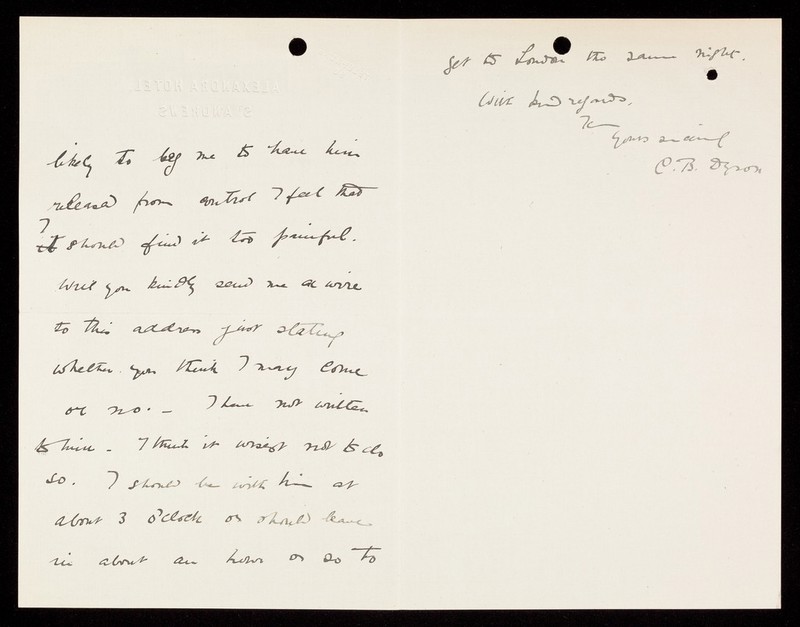 likely to beg me to have him
released from control I feel that
I
it should find it too painful.
Will you kindly send me a wire
to this address just stating
whether you think I may come
or no. - I have not written
to him - I think it wisest not to do
so. I should be with him at
about 3 o'clock or should leave
in about an hour or so to
get to London the same night.
With kind regards,
Yours sincerely
C. B. Dyson
ALEXANDRA HOTEL,